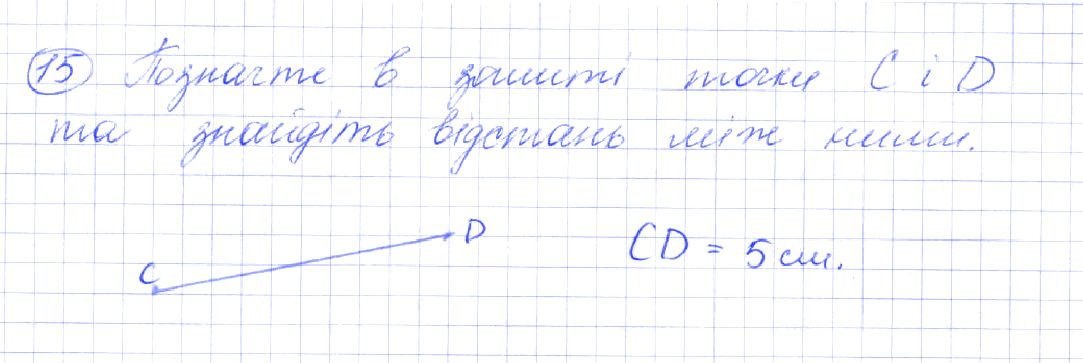 15 Позначте в зошиті точки C і D
та знайдіть відстань між ними.
D
C
CD = 5 см.